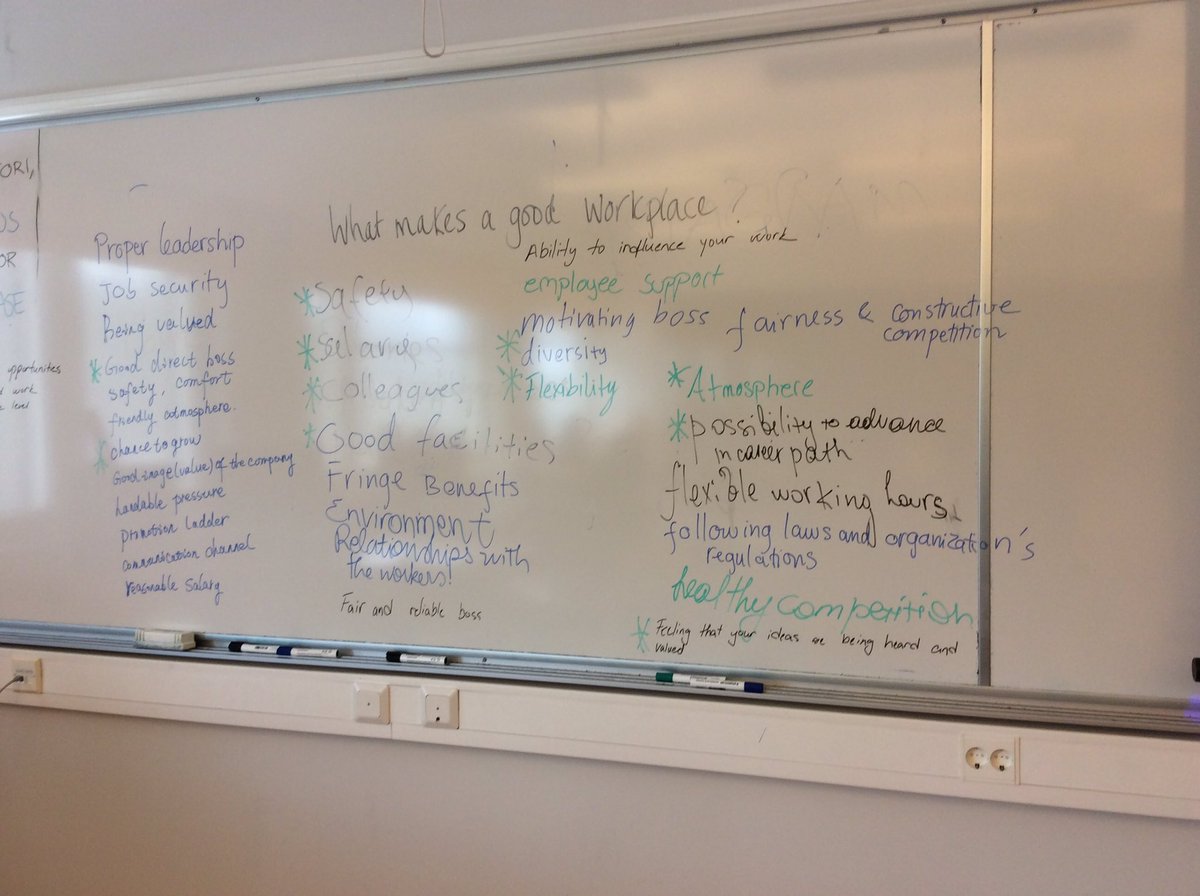 ORI,
OS
OR
ASE
opportunities
work
level
What makes a good workplace?
Proper leadership
Job security
Being valued
* Good direct boss
safety, comfort
friendly catmosphere.
* chance to grow
Good image (value) of the company
handable pressure
promotion ladder
communication channel
reasonable salary
* Safety
* Selaries
* Colleagues
* Good facilities
Fringe Benefits
Environment
Relationships with
the workers!
Fair and reliable boss
Ability to indfluence your work
employee support
motivating boss
* diversity
* Flexibility
fairness & constructive
competition
* Atmosphere
* possibility to advance
in career path
flexible working hours
following laws and organization's
regulations
healthy competition
* Feeling that your ideas are being heard and
valued